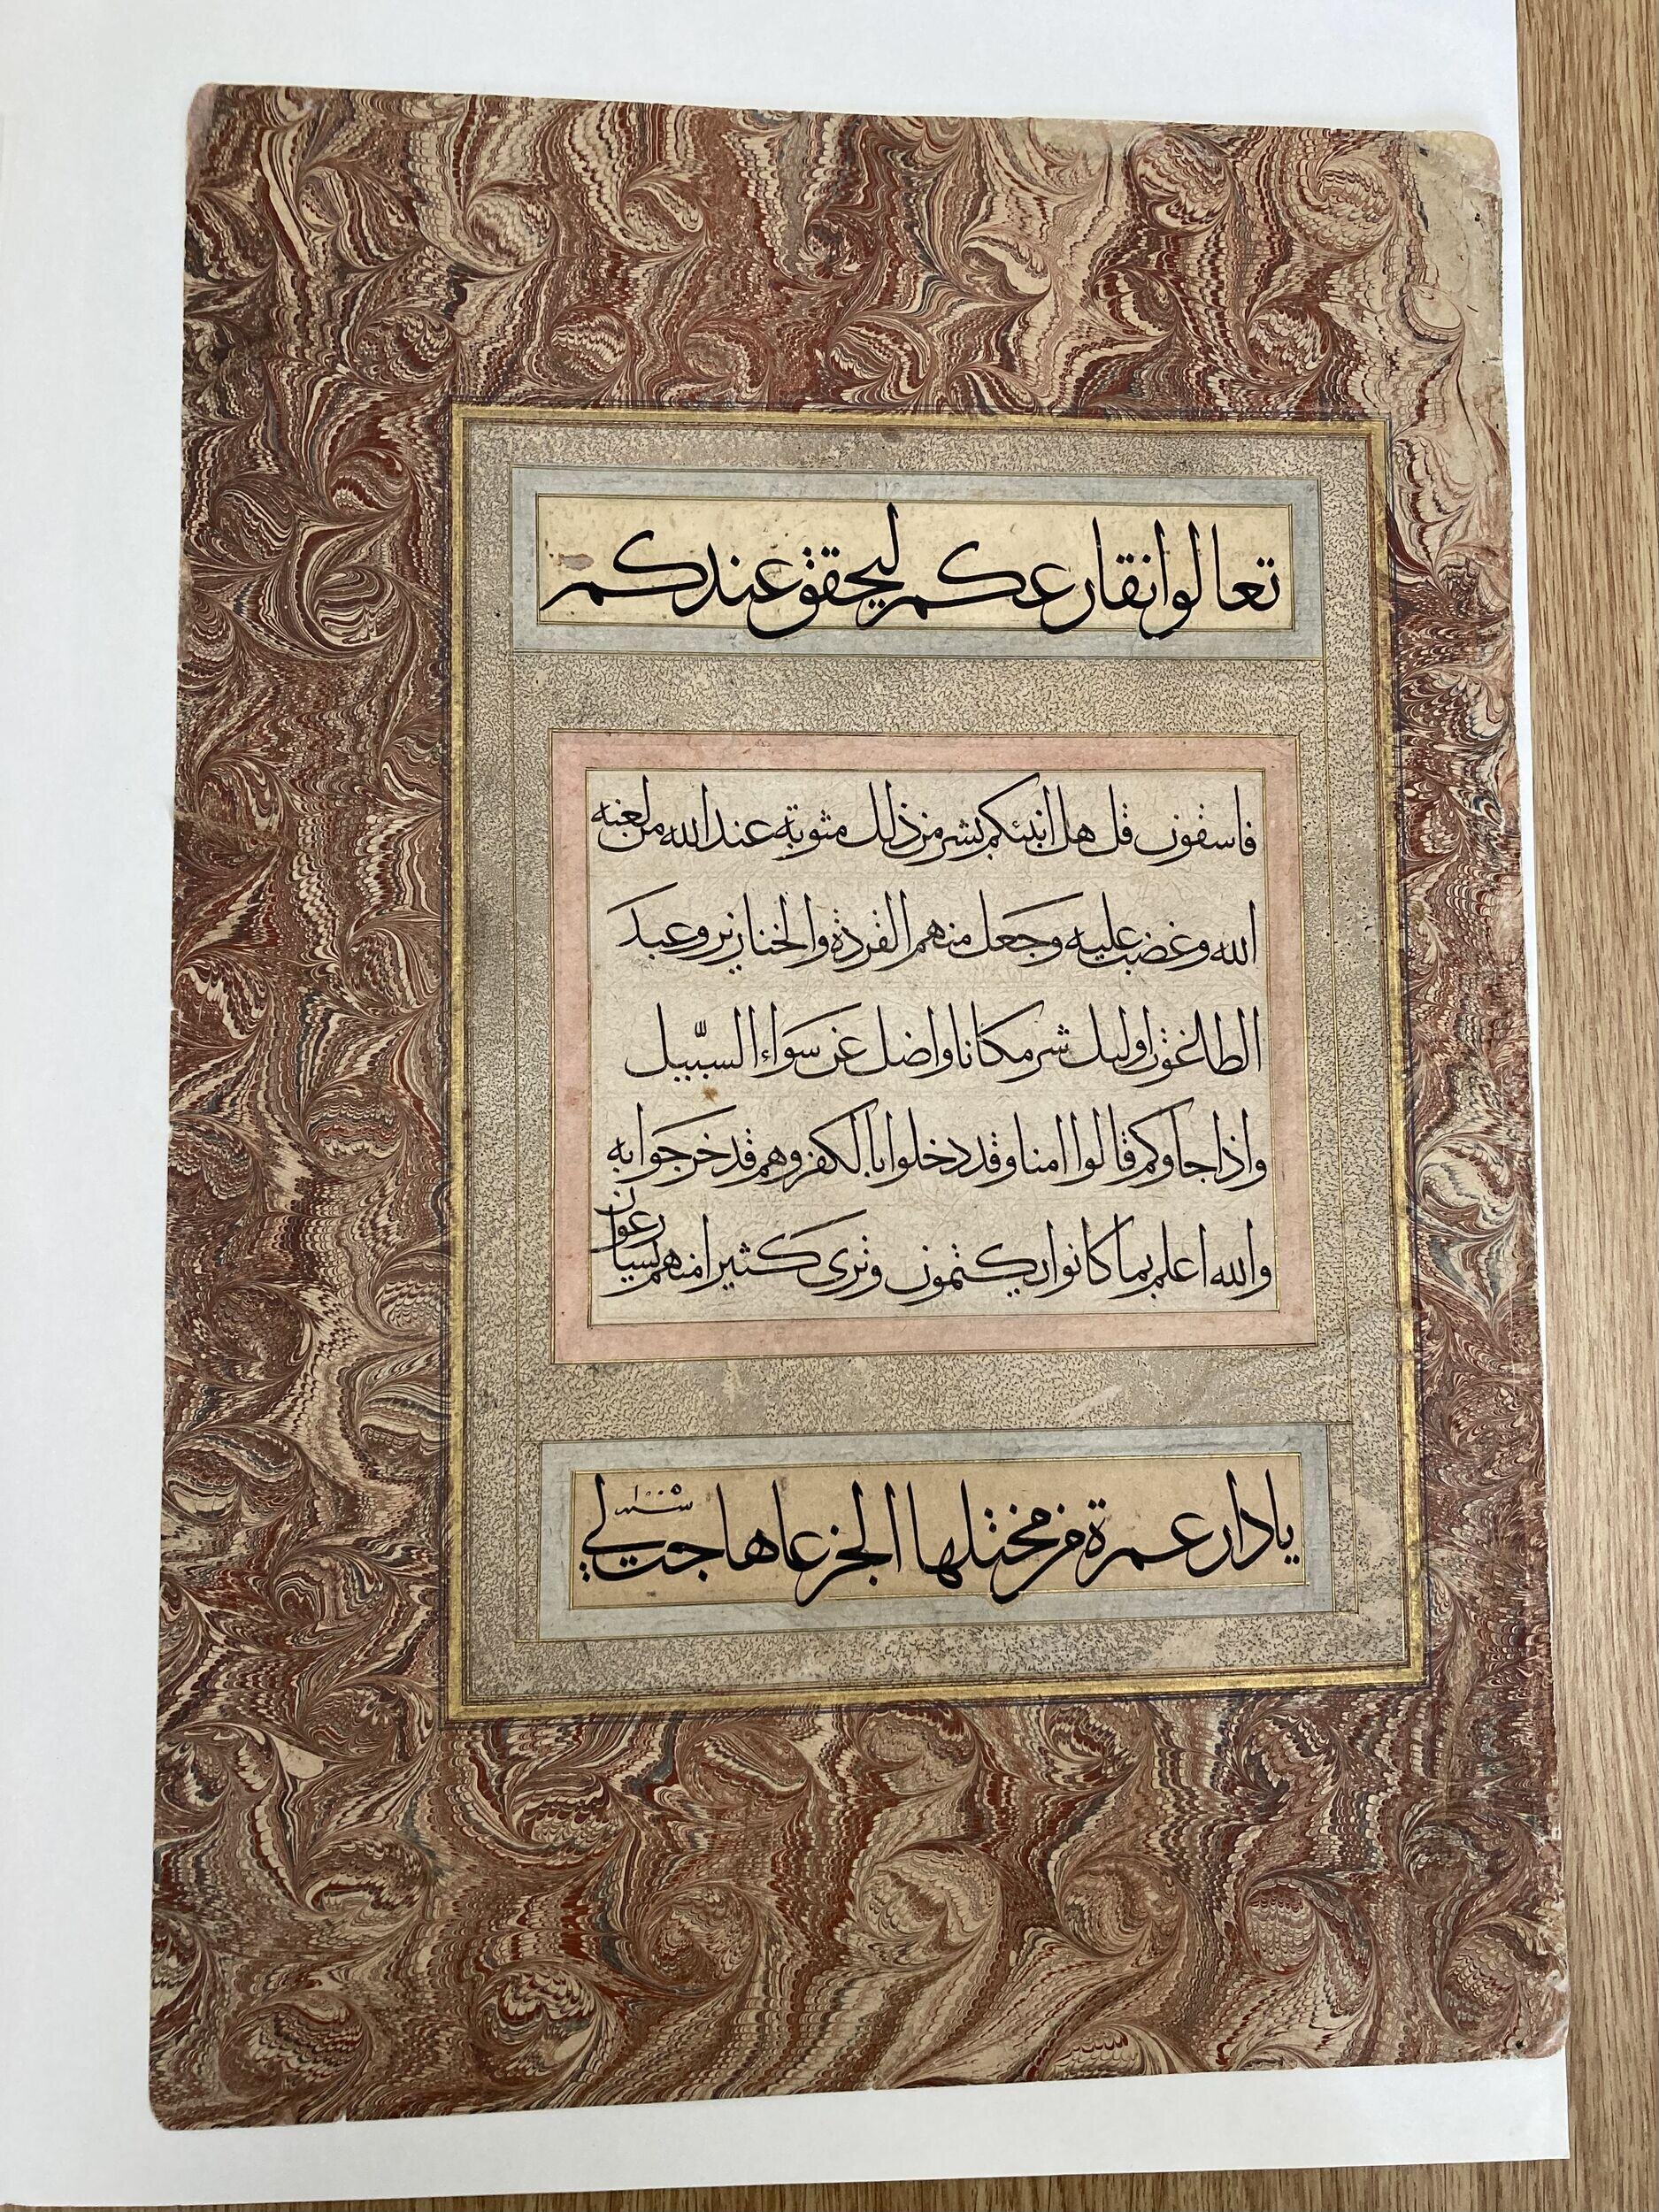 تعالوا نقارعكم ليحقق عندكم
فاسقون قل هل انبئكم بشر من ذلك مثوبة عند الله من لعنه
الله وغضب عليه وجعل منهم القردة والخنازير وعبد
الطاغوت اوليك شر مكانا واضل عن سواء السبيل
واذا جاوكم قالوا امنا وقد دخلوا بالكفر وهم قد خرجوا به
والله اعلم بما كانوا يكتمون وترى كثيرا منهم يسارعون
يا دار عمرة من محتلها الجزعا هاجت لي